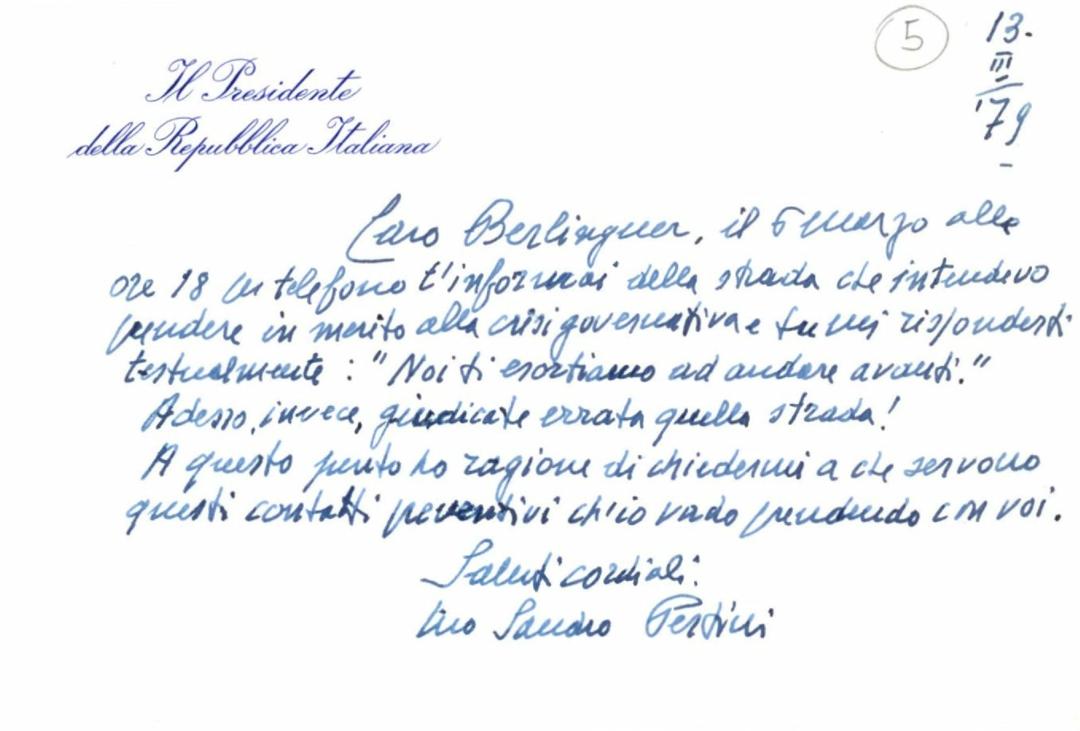 5
13.
III
'79
Il Presidente
della Repubblica Italiana
Caro Berlinguer, il 5 marzo alle
ore 18 per telefono t'informai della strada che intendevo
prendere in merito alla crisi governativa e tu mi rispondesti
testualmente: "Noi ti esortiamo ad andare avanti."
Adesso, invece, giudicate errata quella strada!
A questo punto ho ragione di chiedermi a che servono
questi contatti preventivi ch'io vado prendendo con voi.
Saluti cordiali.
tuo Sandro Pertini